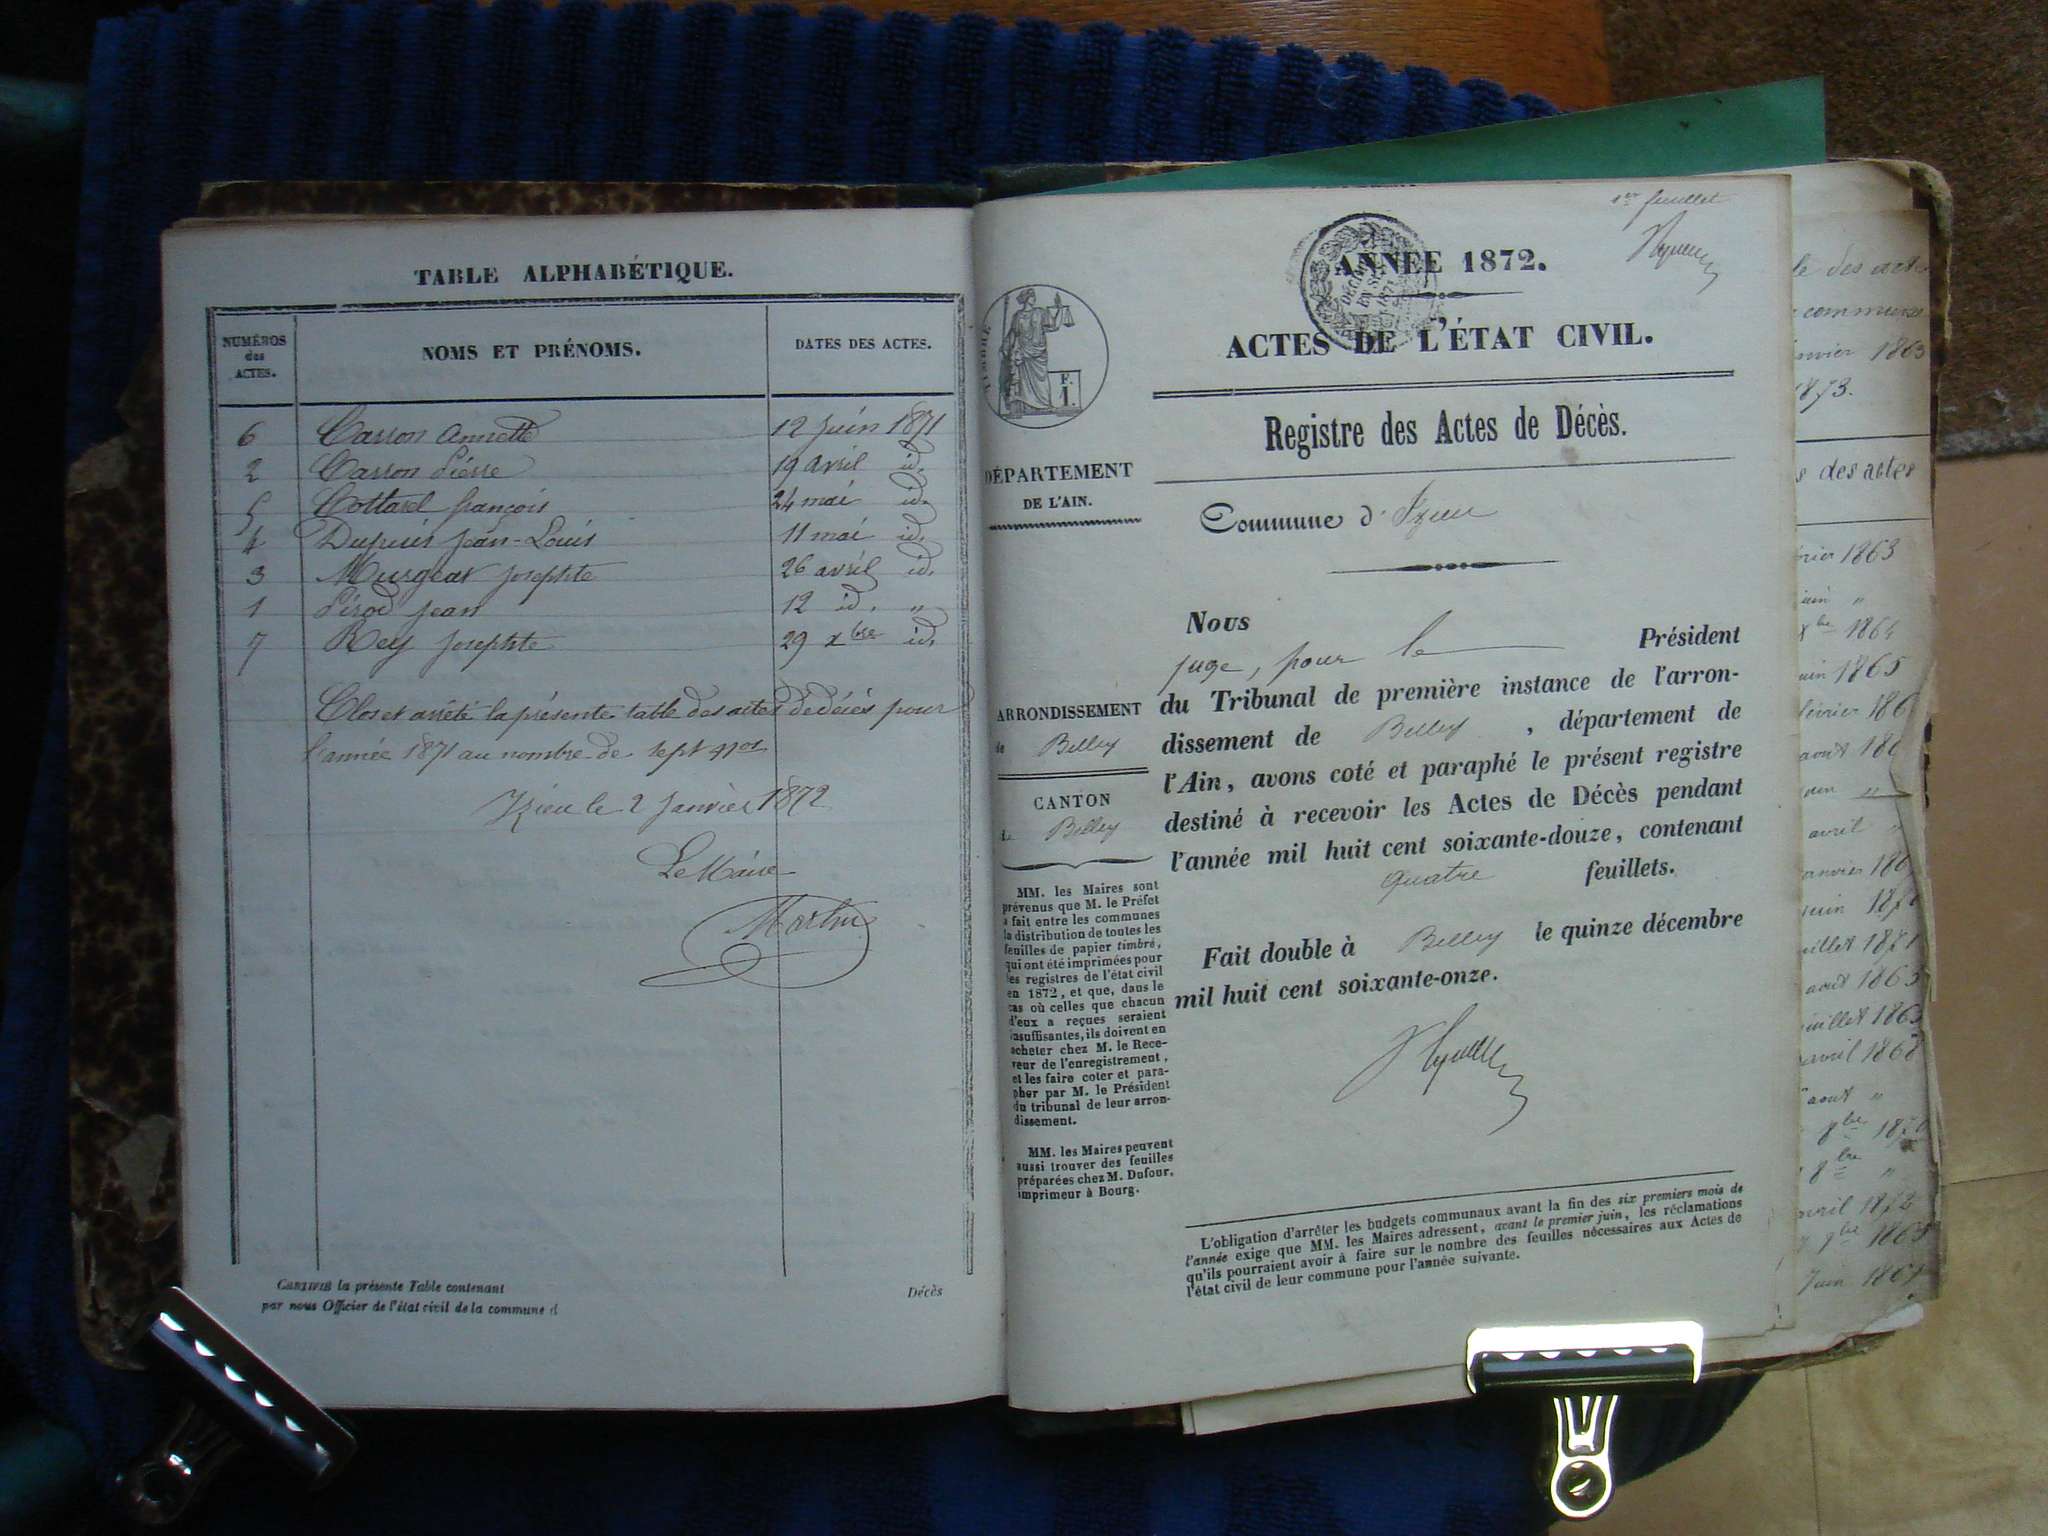 TABLE ALPHABÉTIQUE.
NUMÉROS
des
ACTES.
NOMS ET PRÉNOMS.
DATES DES ACTES.
6 Carron Annette 12 Juin 1871
2 Carron Piérre 19 avril id.
5 Cottarel françois 24 mai id.
4 Dupuis Jean-Louis 11 mai id.
3 Murgear Josephte 26 avril id.
1 Pérod Jean 12 id. "
7 Rey Josephte 29 xbre id.
Clos et arrêté la présente table des actes de décès pour
l'année 1871 au nombre de sept nos
Izieu le 2 Janvier 1872
Le Maire
Martin
CERTIFIE la présente Table contenant
par nous Officier de l'état civil de la commune d
Décès
1er feuillet
ANNÉE 1872.
TIMBRE
F.
1.
EN SUS
1871
ACTES DE L'ÉTAT CIVIL.
Registre des Actes de Décès.
DÉPARTEMENT
DE L'AIN.
Commune d'Izieu
ARRONDISSEMENT
de Belley
CANTON
de Belley
MM. les Maires sont
prévenus que M. le Préfet
a fait entre les communes
la distribution de toutes les
feuilles de papier timbré,
qui ont été imprimées pour
les registres de l'état civil
en 1872, et que, dans le
cas où celles que chacun
d'eux a reçues seraient
insuffisantes, ils doivent en
acheter chez M. le Rece-
veur de l'enregistrement,
et les faire coter et para-
pher par M. le Président
du tribunal de leur arron-
dissement.
MM. les Maires peuvent
aussi trouver des feuilles
préparées chez M. Dufour,
imprimeur à Bourg.
Nous
juge, pour le Président
du Tribunal de première instance de l'arron-
dissement de Belley, département de
l'Ain, avons coté et paraphé le présent registre
destiné à recevoir les Actes de Décès pendant
l'année mil huit cent soixante-douze, contenant
quatre feuillets.
Fait double à Belley le quinze décembre
mil huit cent soixante-onze.
L'obligation d'arrêter les budgets communaux avant la fin des six premiers mois de
l'année exige que MM. les Maires adressent, avant le premier juin, les réclamations
qu'ils pourraient avoir à faire sur le nombre des feuilles nécessaires aux Actes de
l'état civil de leur commune pour l'année suivante.
des actes
communes
1863
1873.
des actes
1863
juin "
1864
juin 1865
février
août
avril "
janvier
juin
juillet 1871
août 1863
juillet 1863
avril 1868
août "
8bre
8bre "
avril 1872
9bre 1863
Juin